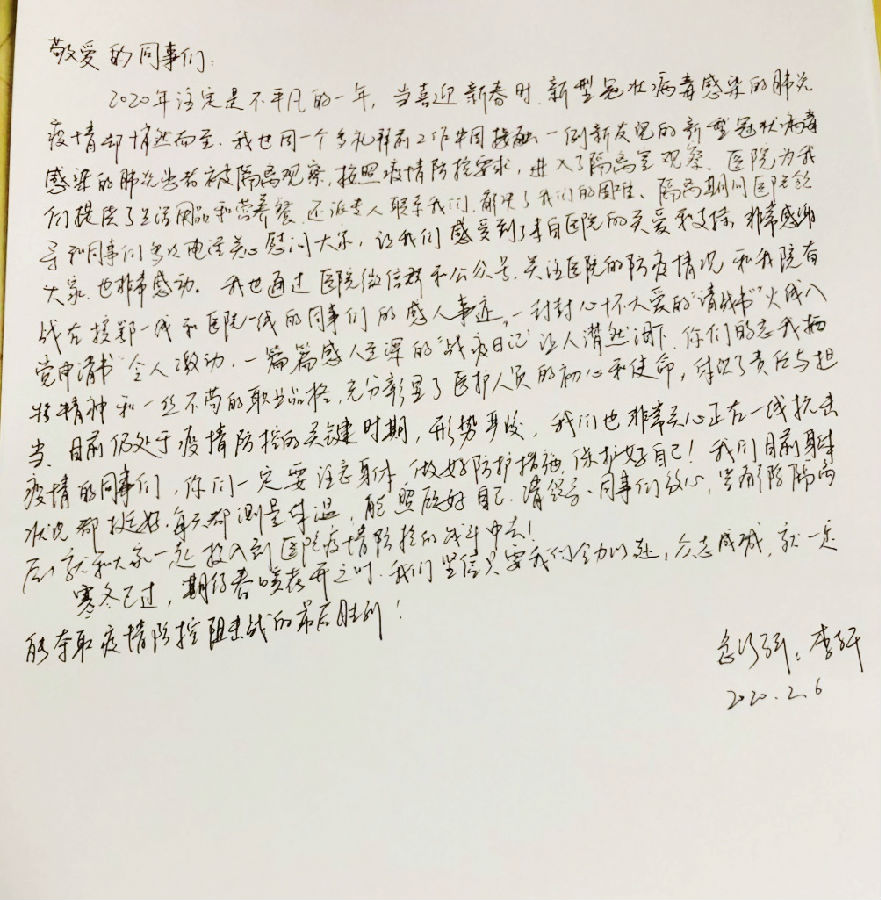 敬爱的同事们：
2020年注定是不平凡的一年，当喜迎新春时，新型冠状病毒感染的肺炎
疫情却悄然而至。我也因一个多礼拜前工作中因接触一例新发现的新型冠状病毒
感染的肺炎患者被隔离观察，按照疫情防控要求，进入了隔离室观察。医院为我
们提供了生活用品和营养餐，还派专人联系我们，解决了我们的困难。隔离期间医院领
导和同事们多次电话关心慰问大家，让我们感受到了来自医院的关爱和支持，非常感谢
大家，也非常感动。我也通过医院微信群和公众号，关注医院的防疫情况和我院奋
战在援鄂一线和医院一线的同事们的感人事迹，一封封心怀大爱的“请战书”火线入
党申请书“令人激动，一篇篇感人至深的”战疫日记”让人潸然泪下，你们的忘我牺
牲精神和一丝不苟的职业品格，充分彰显了医护人员的初心和使命，体现了责任与担
当。目前仍处于疫情防控的关键时期，形势严峻，我们也非常关心正在一线抗击
疫情的同事们，你们一定要注意身体，做好防护措施，保护好自己！我们目前身体
状况都挺好，每天都测量体温，能照顾好自己，请领导、同事们放心，岀解除隔离
后，就和大家一起投入到医院疫情防控的战斗中去！
寒冬已过，期待春暖花开之时，我们坚信只要我们全力以赴，众志成城，就一定
能夺取疫情防控阻击战的最后胜利！
李轩
2020.2.6